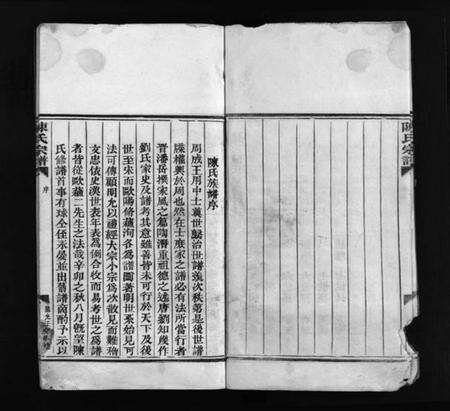 陳氏宗譜
陳氏族譜序
周成王用中士奠世繫治世譜遞次秩第是後世譜
牒權輿於周也然在士庶家之譜必有法所當行者
晉潘岳撰家風之篇陶潛重祖德之述唐劉知幾作
劉氏家史及譜考其意雖善皆未可行於天下及後
世至宋而歐陽脩蘇洵各為譜圖著明世系始見可
法可傳顧明允以禮經大宗小宗為次散見而難稽
文忠依史漢世表年表為例合收而易考世之為譜
者皆從歐蘇二先生之法哉辛卯之秋八月既望陳
氏修譜首事有球仝侄永晏並出舊譜商酌予示以
陳氏宗譜
序